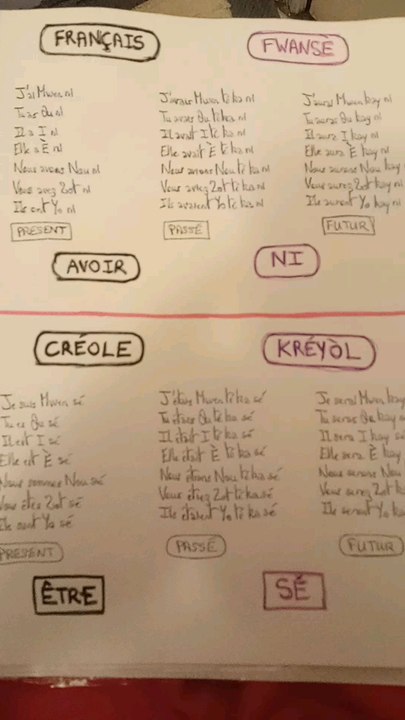 FRANÇAIS
FWANSÈ
J'ai Mwen ni
Tu as Ou ni
Il a I ni
Elle a È ni
Nous avons Nou ni
Vous avez Zot ni
Ils ont Yo ni
PRÉSENT
J'avais Mwen té ka ni
Tu avais Ou té ka ni
Il avait I té ka ni
Elle avait È té ka ni
Nous avions Nou té ka ni
Vous aviez Zot té ka ni
Ils avaient Yo té ka ni
PASSÉ
J'aurai Mwen kay ni
Tu auras Ou kay ni
Il aura I kay ni
Elle aura È kay ni
Nous aurons Nou kay ni
Vous aurez Zot kay ni
Ils auront Yo kay ni
FUTUR
AVOIR
NI
CRÉOLE
KRÉYÒL
Je suis Mwen sé
Tu es Ou sé
Il est I sé
Elle est È sé
Nous sommes Nou sé
Vous êtes Zot sé
Ils sont Yo sé
PRESENT
J'étais Mwen té ka sé
Tu étais Ou té ka sé
Il était I té ka sé
Elle était È té ka sé
Nous étions Nou té ka sé
Vous étiez Zot té ka sé
Ils étaient Yo té ka sé
PASSÉ
Je serai Mwen kay
Tu seras Ou kay
Il sera I kay sé
Elle sera È kay
Nous serons Nou
Vous serez Zot k
Ils seront Yo kay
FUTUR
ÊTRE
SÉ